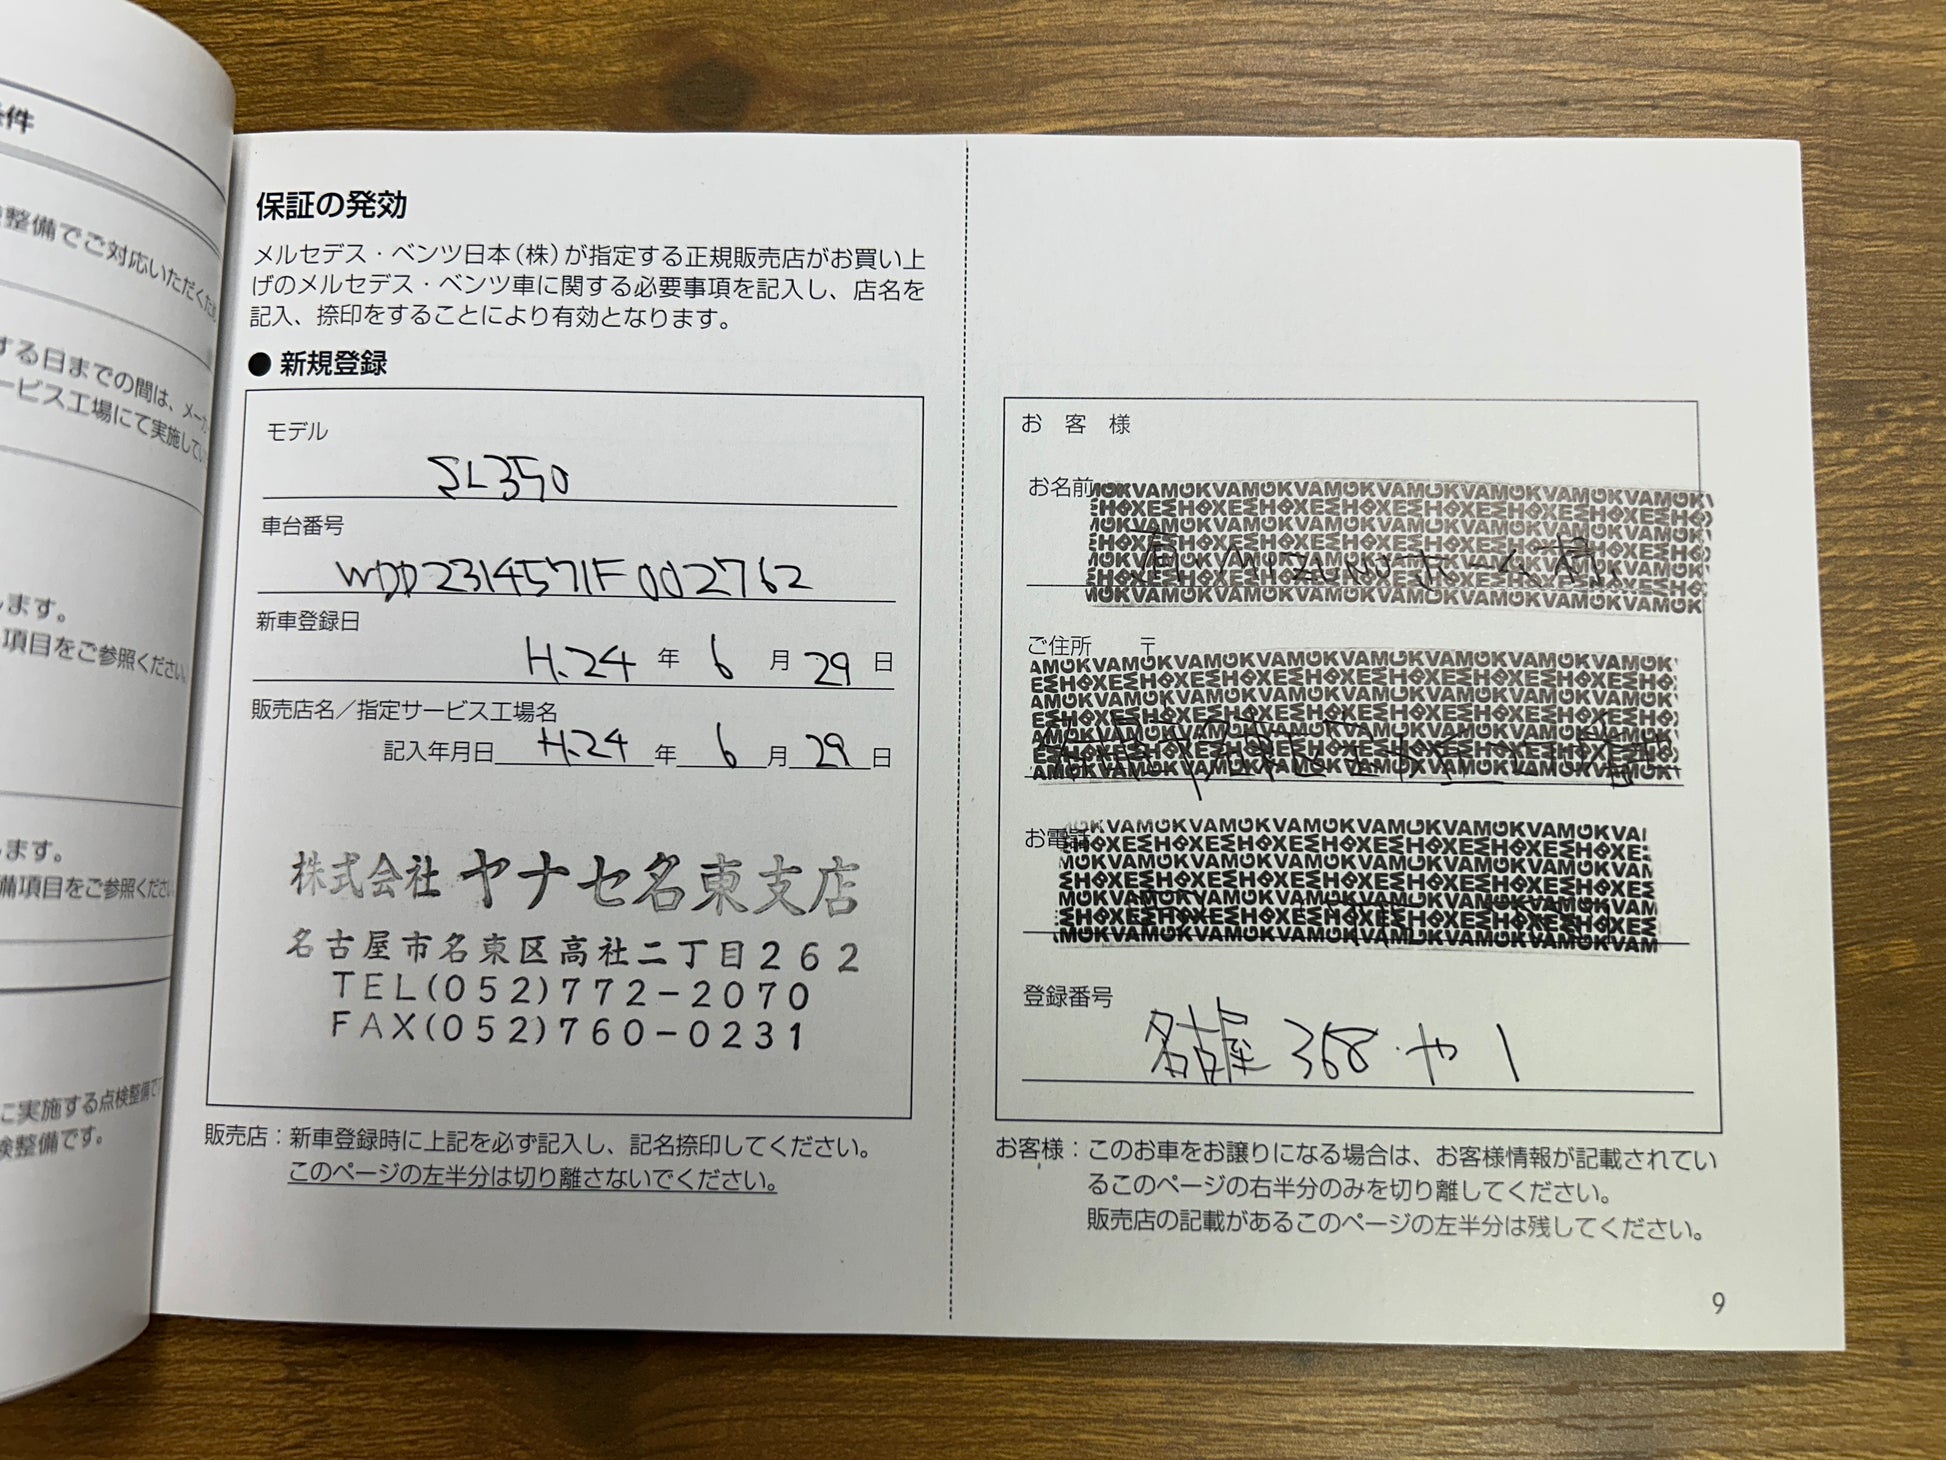 条件
整備でご対応いただくため
する日までの間は、メーカー
ービス工場にて実施してい
します。
項目をご参照ください。
します。
備項目をご参照ください。
に実施する点検整備で
検整備です。
保証の発効
メルセデス・ベンツ日本(株)が指定する正規販売店がお買い上
げのメルセデス・ベンツ車に関する必要事項を記入し、店名を
記入、捺印をすることにより有効となります。
● 新規登録
モデル
SL350
車台番号
WDD2314571F002762
新車登録日
H.24 年 6 月 29 日
販売店名/指定サービス工場名
記入年月日 H.24 年 6 月 29 日
株式会社 ヤナセ名東支店
名古屋市名東区高社二丁目262
TEL(052)772-2070
FAX(052)760-0231
販売店:新車登録時に上記を必ず記入し、記名捺印してください。
このページの左半分は切り離さないでください。
お客様
お名前
ご住所 〒
お電話
登録番号
名古屋 368・や 1
お客様:このお車をお譲りになる場合は、お客様情報が記載されてい
るこのページの右半分のみを切り離してください。
販売店の記載があるこのページの左半分は残してください。
9